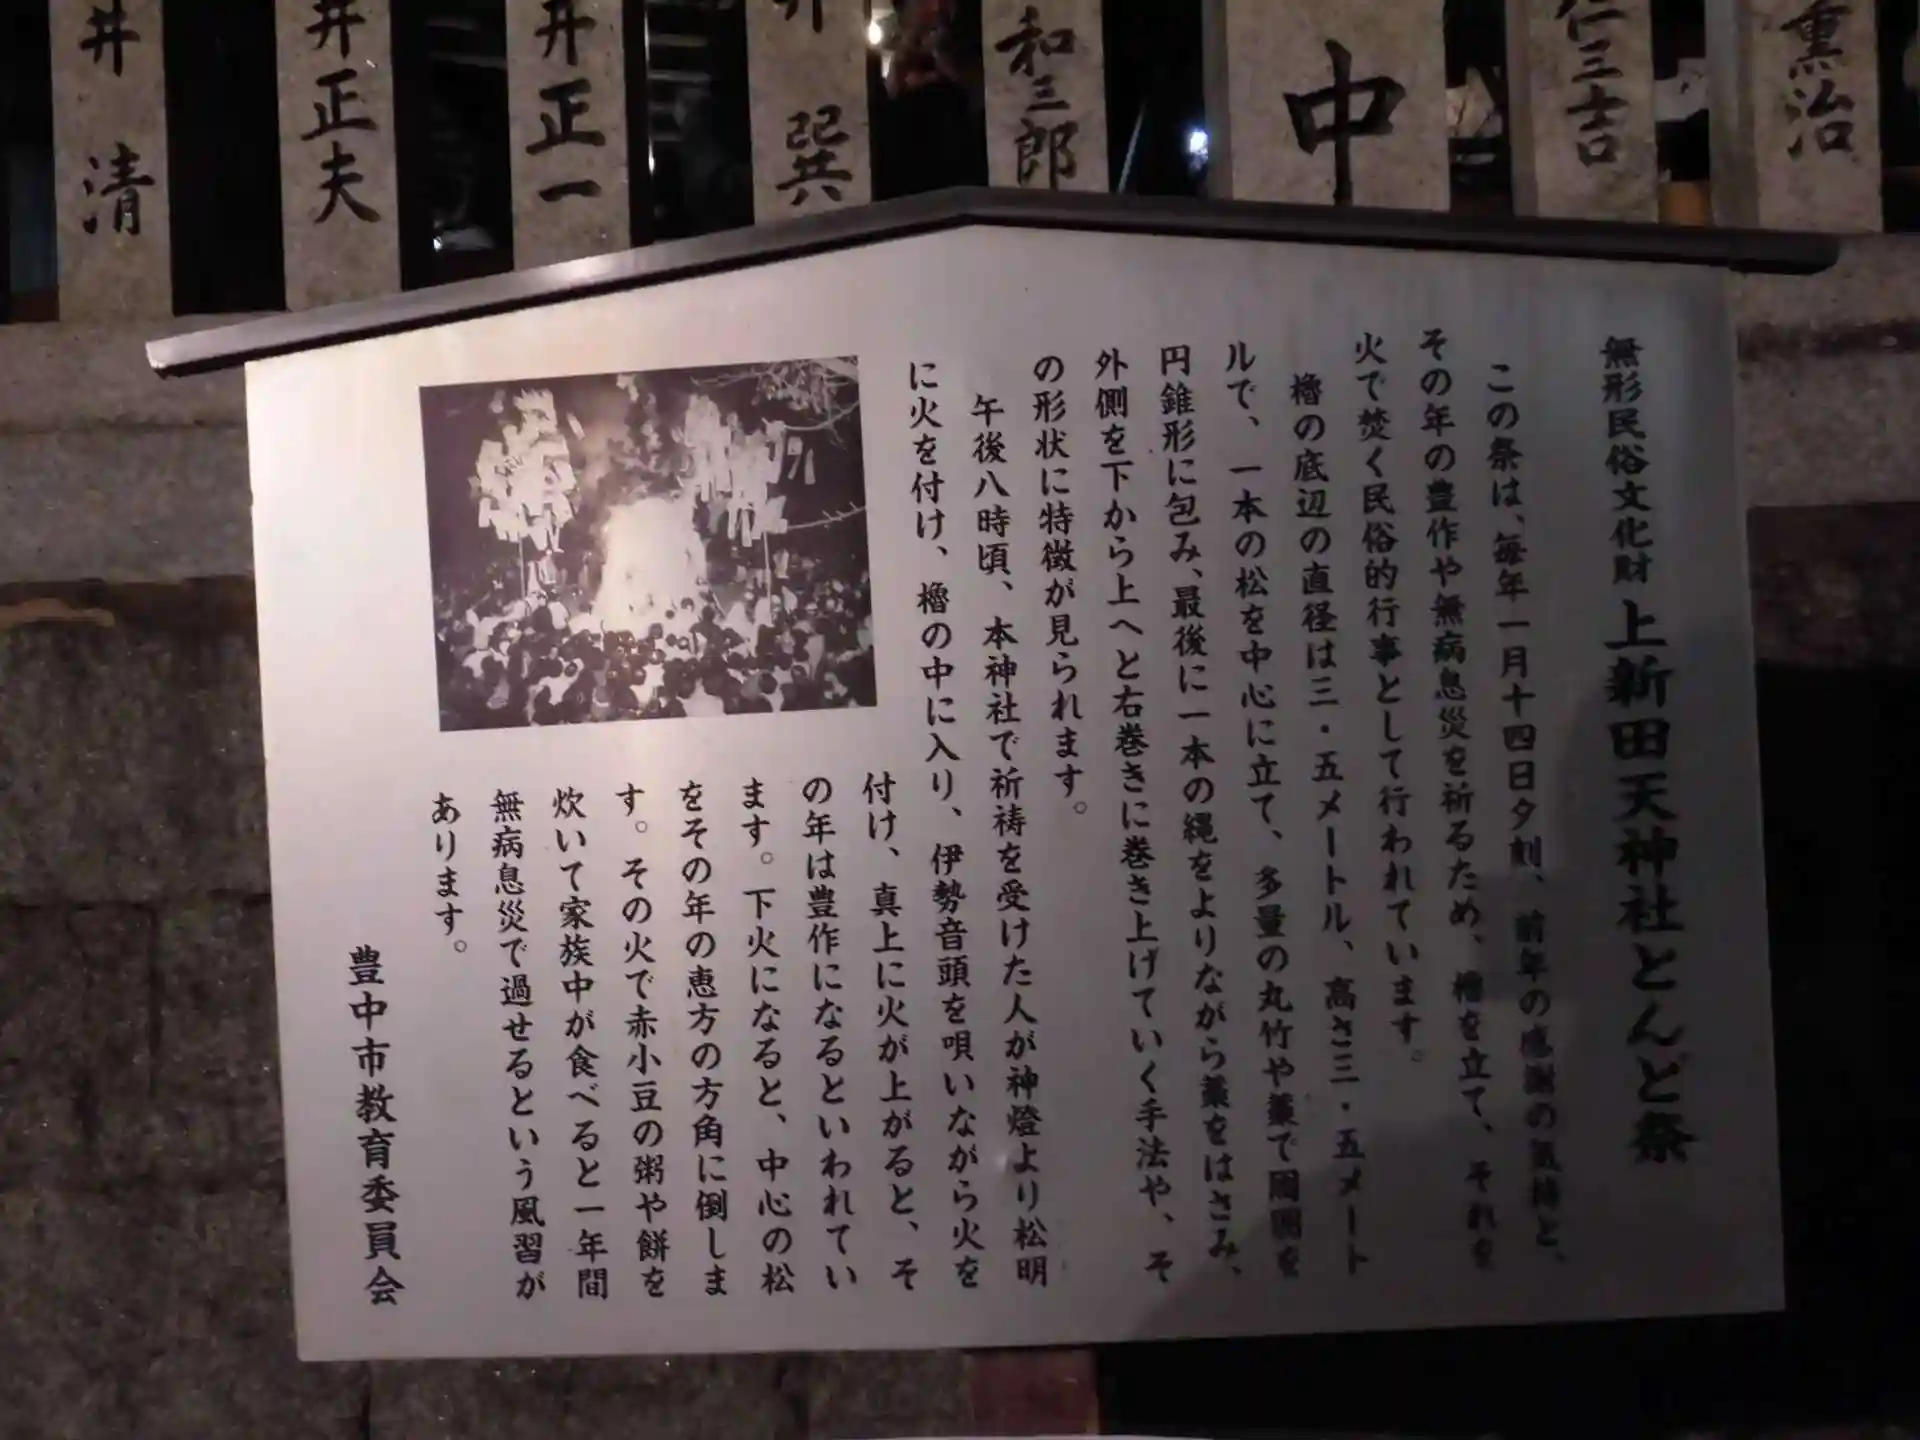 井 清
井正夫
井正一
井 巽
和三郎
中
仁三吉
薫治
無形民俗文化財 上新田天神社とんど祭
この祭は、毎年一月十四日夕刻、前年の感謝の気持と、
その年の豊作や無病息災を祈るため、櫓を立て、それを
火で焚く民俗的行事として行われています。
櫓の底辺の直径は三・五メートル、高さ三・五メート
ルで、一本の松を中心に立て、多量の丸竹や藁で周囲を
円錐形に包み、最後に一本の縄をよりながら藁をはさみ、
外側を下から上へと右巻きに巻き上げていく手法や、そ
の形状に特徴が見られます。
午後八時頃、本神社で祈祷を受けた人が神燈より松明
に火を付け、櫓の中に入り、伊勢音頭を唄いながら火を
付け、真上に火が上がると、そ
の年は豊作になるといわれてい
ます。下火になると、中心の松
をその年の恵方の方角に倒しま
す。その火で赤小豆の粥や餅を
炊いて家族中が食べると一年間
無病息災で過せるという風習が
あります。
豊中市教育委員会